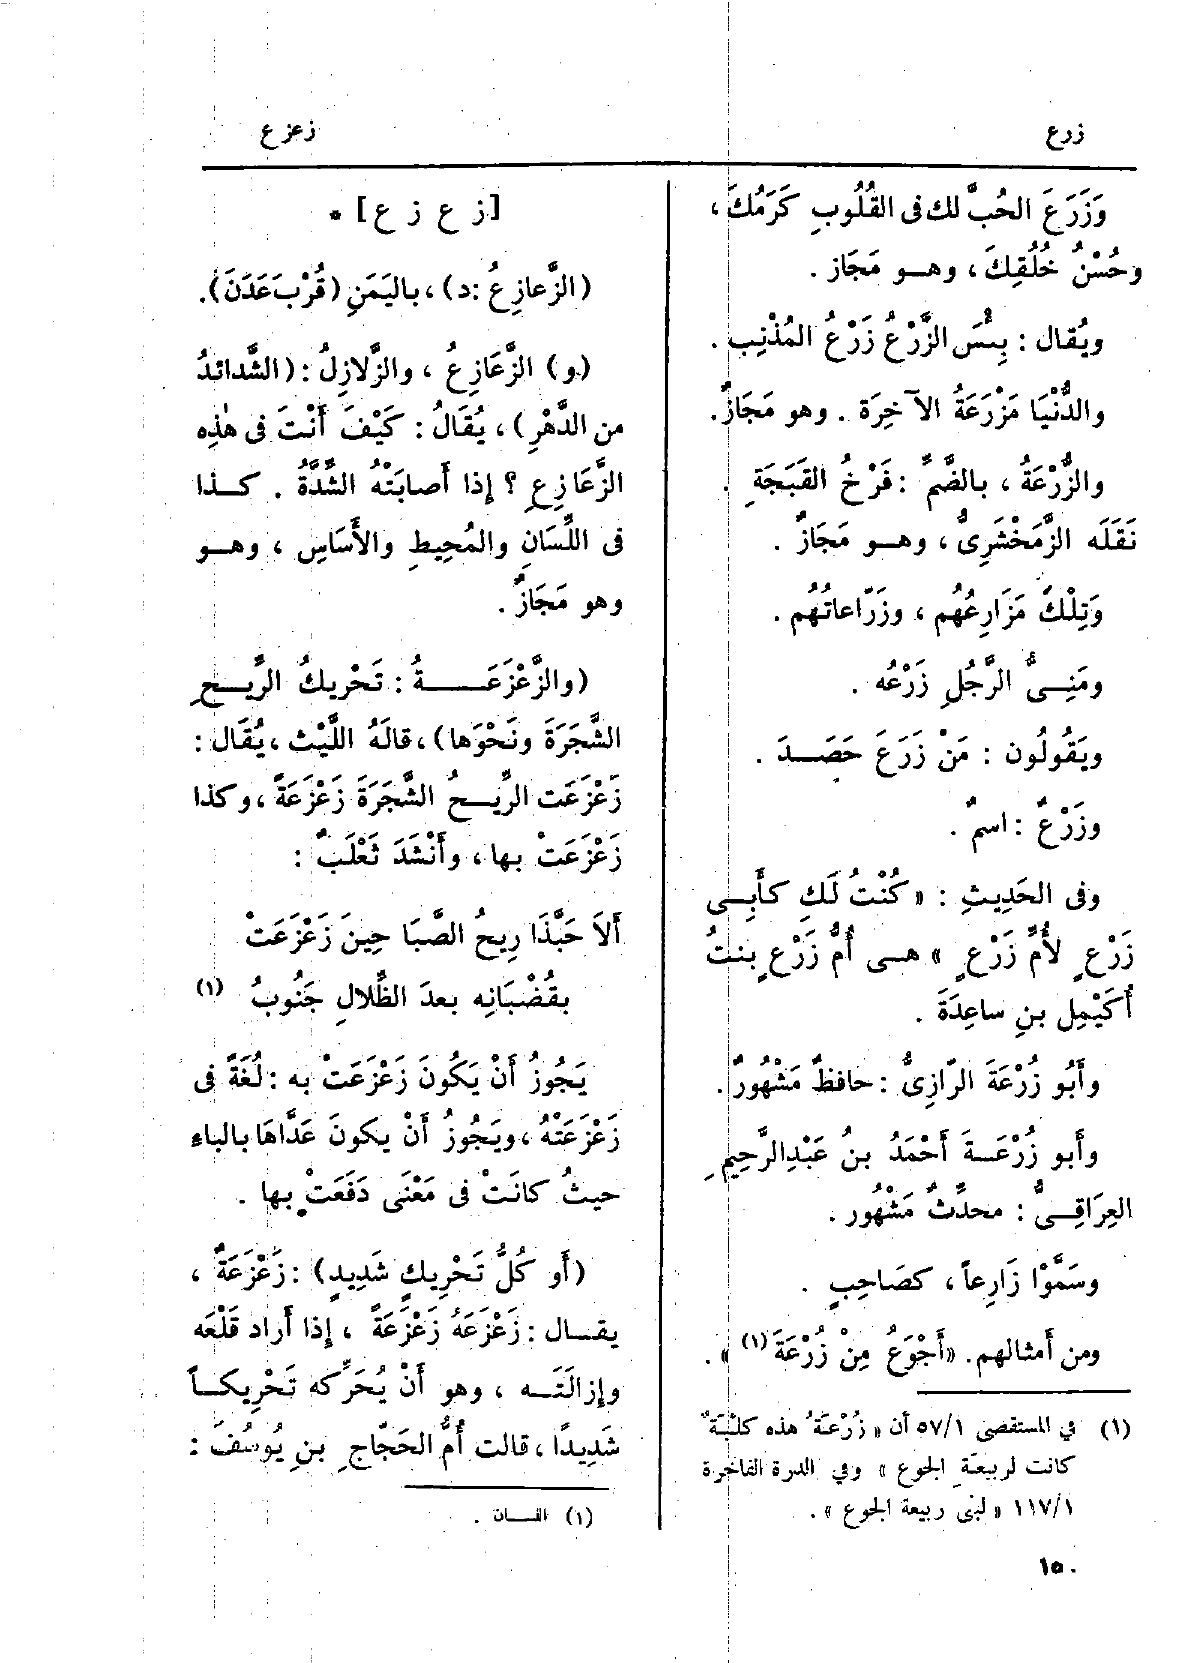 زرع
زعزع
وَزَرَعَ الحُبَّ لك فى القُلُوبِ كَرَمُكَ ،
وحُسْنُ خُلُقِكَ ، وهــو مَجَاز .
ويُقال : بِئْسَ الزَّرْعُ زَرْعُ المُذْنِب .
والدُّنْيَا مَزْرَعَةُ الآخِرَة . وهو مَجَازٌ.
والزُّرْعَةُ ، بالضّم : فَرْخُ القَبَجَةِ .
نَقَلَه الزَّمَخْشَرِىُّ ، وهــو مَجَازٌ .
وَتِلْكَ مَزَارِعُهُم ، وزَرّاعاتُهُم .
ومَنِــىُّ الرَّجُلِ زَرْعُه .
ويَقُولُون : مَنْ زَرَعَ حَصَــدَ .
وزَرْعٌ : اسمٌ .
وفى الحَدِيثِ : « كُنْتُ لَكِ كأَبِــى
زَرْعٍ لأُمِّ زَرْعٍ » هــى أُمُّ زَرْعٍ بنتُ
أُكَيْمِل بنِ ساعِدَةَ .
وأَبُو زُرْعَةَ الرّازِىُّ : حافظٌ مَشْهُورٌ .
وأَبو زُرْعَــةَ أَحْمَدُ بنُ عَبْدِالرَّحِيمِ
العِرَاقِــىُّ : محدِّثٌ مَشْهُور .
وسَمَّوْا زَارِعاً ، كصَاحِبٍ .
ومن أَمثالهم. «أَجْوَعُ مِنْ زُرْعَةَ (١) » .
(١) في المستقصى ٥٧/١ أن « زُرْعَةُ هذه كلْبَةٌ
كانت لربيعَةِ الجوع » وفي الدرة الفاخرة
١١٧/١ « لبنى ربيعة الجوع » .
[ ز ع ز ع ] *
(الزَّعازِعُ : د) ، باليَمَنِ (قُرْبَ عَدَنَ).
(و) الزَّعَازِعُ ، والزَّلازِلُ : (الشَّدائدُ
من الدَّهْرِ) ، يُقَالُ : كَيْفَ أَنْتَ فى هٰذِه
الزَّعَازِعِ ؟ إِذا أَصابَتْهُ الشِّدَّةُ . كــذا
فى اللِّسَانِ والمُحِيطِ والأَسَاسِ ، وهــو
وهو مَجَازٌ .
(والزَّعْزَعَــــةُ : تَحْرِيكُ الرِّيــحِ
الشَّجَرَةَ ونَحْوَها) ، قالَهُ اللَّيْث ، يُقَال :
زَعْزَعَت الرِّيــحُ الشَّجَرَةَ زَعْزَعَةً ، وكذا
زَعْزَعَتْ بها ، وأَنْشَدَ ثَعْلَبٌ :
أَلاَ حَبَّذَا رِيحُ الصَّبَا حِينَ زَعْزَعَتْ
بِقُضْبَانِه بعدَ الظِّلالِ جَنُوبُ (١)
يَجُوزُ أَنْ يَكُونَ زَعْزَعَتْ به : لُغَةً فى
زَعْزَعَتْهُ ، ويَجُوزُ أَنْ يكونَ عَدَّاهَا بالباءِ
حيثُ كانَتْ فى مَعْنَى دَفَعَتْ بها .
(أَو كُلُّ تَحْرِيكٍ شَدِيدٍ) : زَعْزَعَةٌ ،
يقــال : زَعْزَعَهُ زَعْزَعَةً ، إِذا أَراد قَلْعَه
وإِزالَتَــه ، وهو أَنْ يُحَرِّكه تَحْرِيكــاً
شَدِيدًا ، قالت أُمُّ الحَجّاجِ بنِ يُوسُفَ :
(١) اللسان .
١٥٠